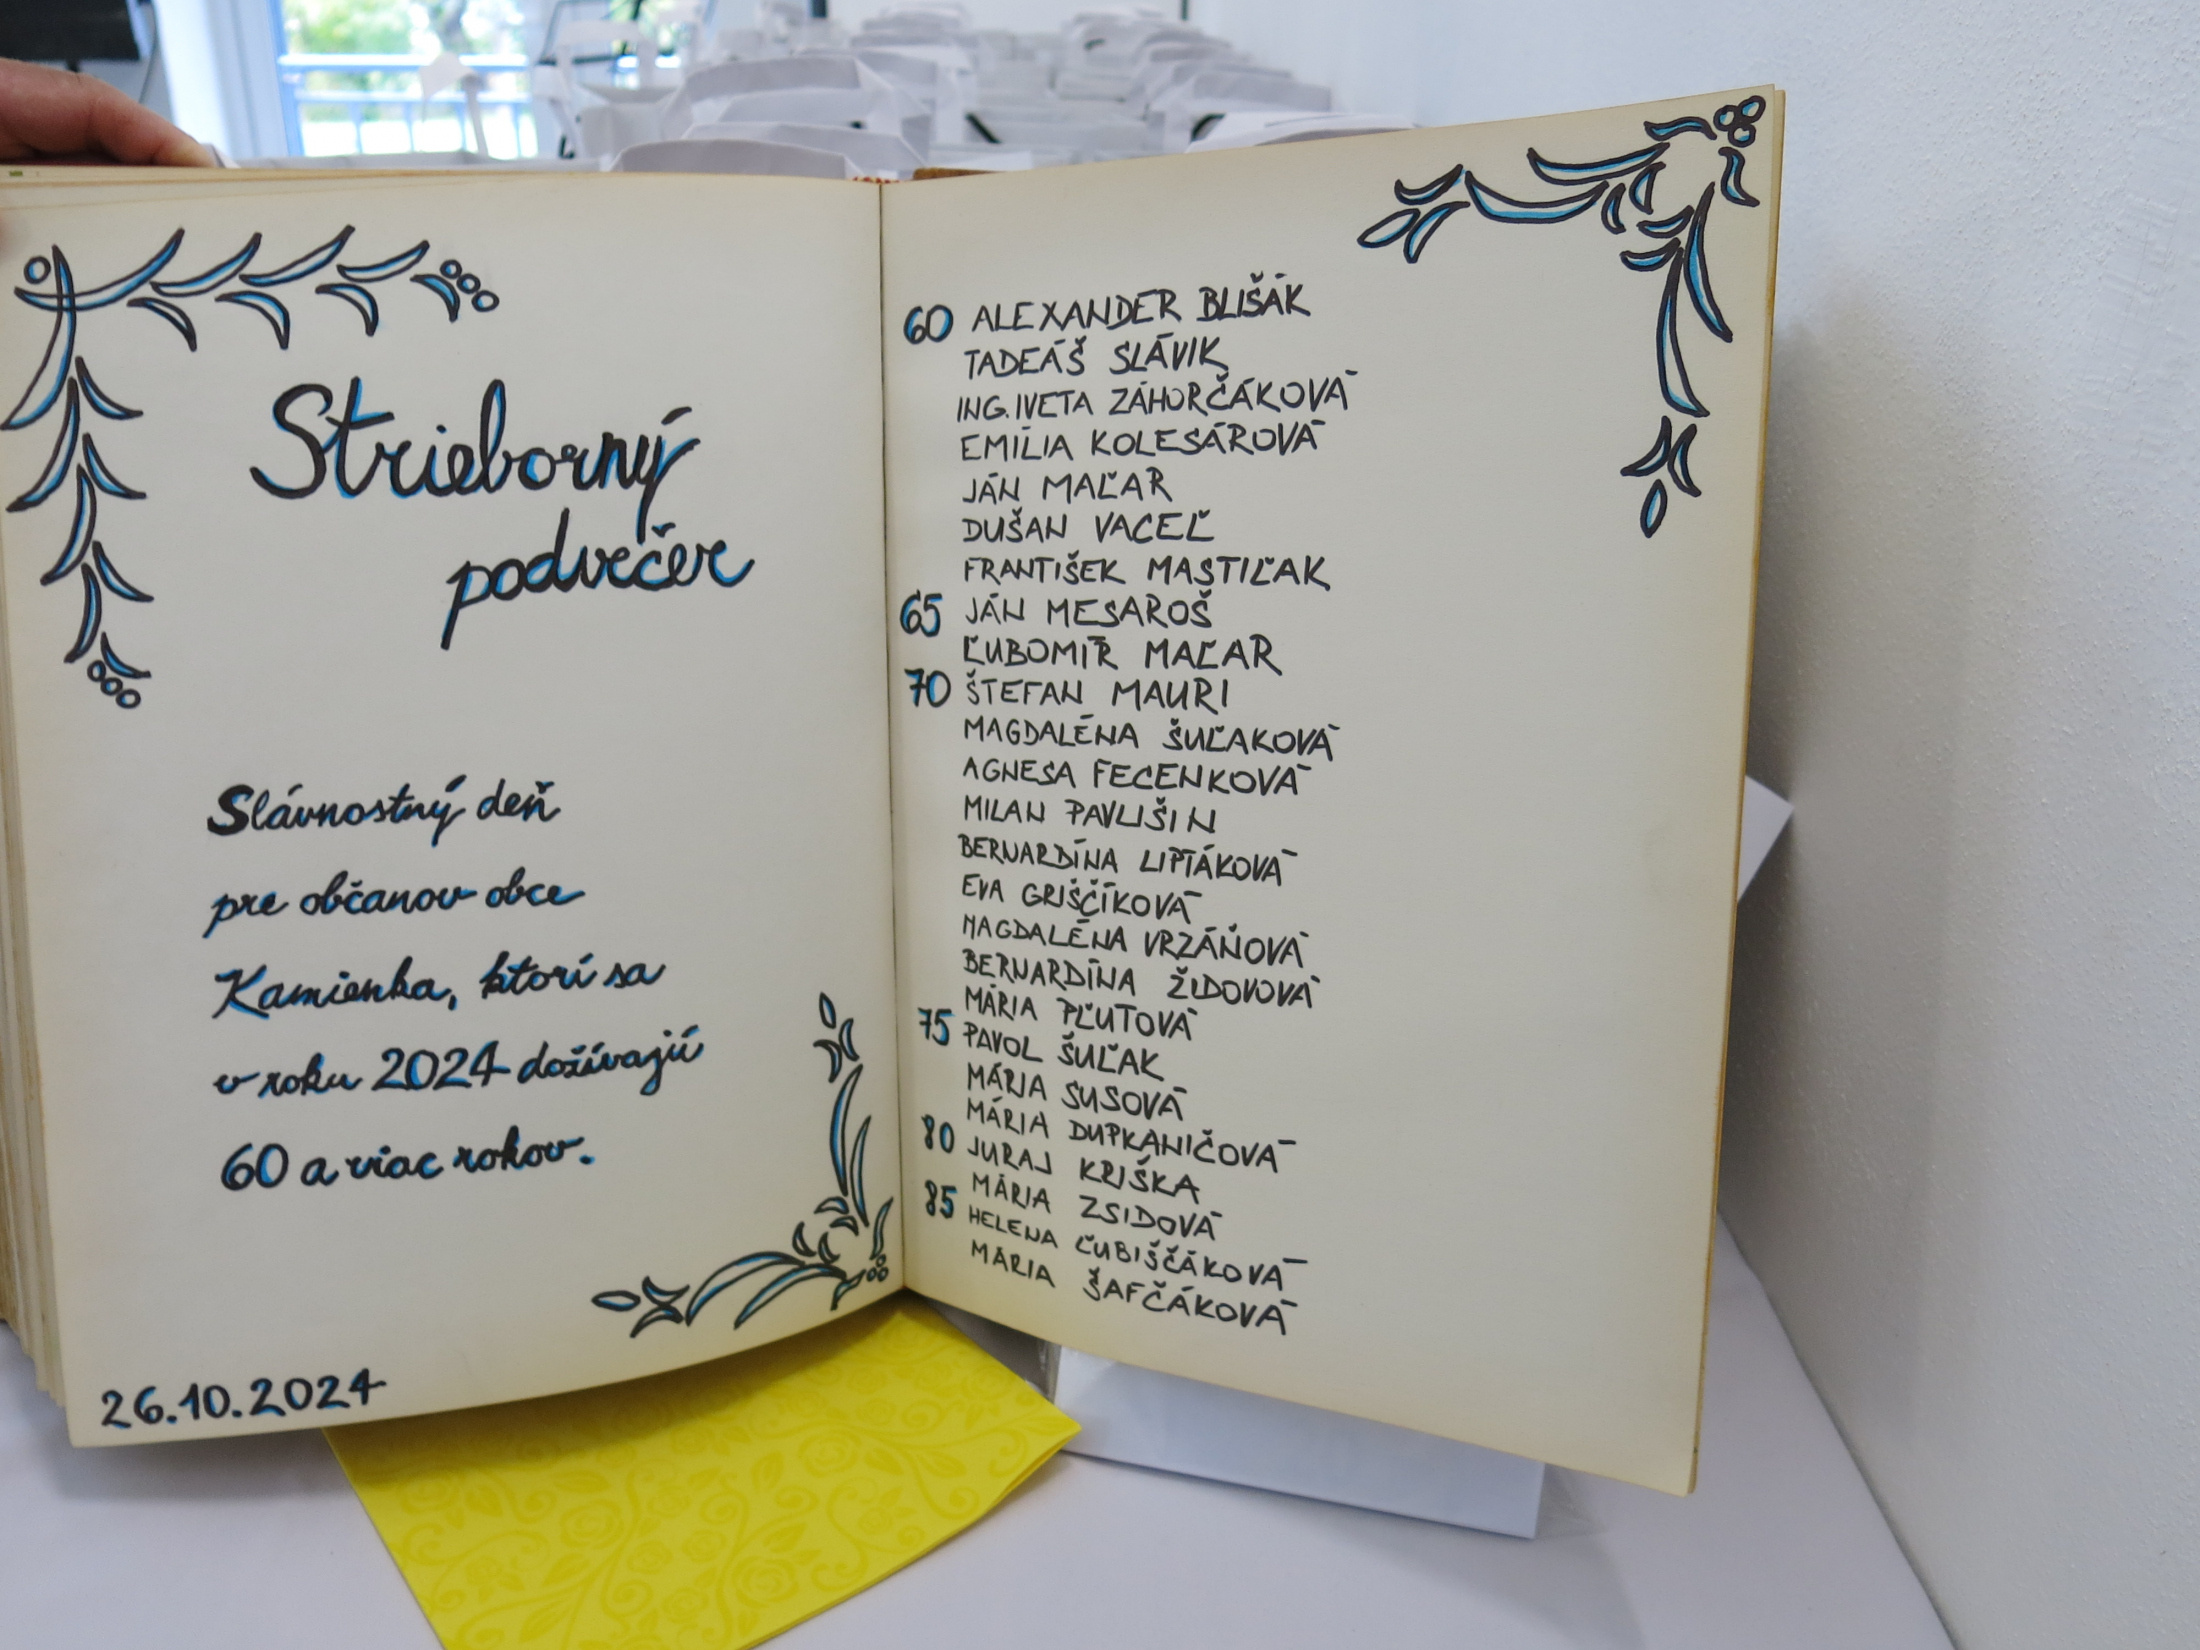 Strieborný
podvečer
Slávnostný deň
pre občanov obce
Kamienka, ktorí sa
v roku 2024 dožívajú
60 a viac rokov.
26.10.2024
60 ALEXANDER BLIŠÁK
TADEÁŠ SLÁVIK
ING. IVETA ZÁHORČÁKOVÁ
EMÍLIA KOLESÁROVÁ
JÁN MAĽAR
DUŠAN VACEĽ
FRANTIŠEK MASTIĽAK
65 JÁN MESAROŠ
ĽUBOMÍR MAĽAR
70 ŠTEFAN MAURI
MAGDALÉNA ŠUĽAKOVÁ
AGNESA FECENKOVÁ
MILAN PAVLIŠIN
BERNARDÍNA LIPTÁKOVÁ
EVA GRIŠČÍKOVÁ
MAGDALÉNA VRZÁŇOVÁ
BERNARDÍNA ŽIDOVOVÁ
MÁRIA PĽUTOVÁ
75 PAVOL ŠUĽAK
MÁRIA SUSOVÁ
MÁRIA DUPKANIČOVÁ
80 JURAJ KRIŠKA
MÁRIA ZSIDOVÁ
85 HELENA ĽUBIŠČÁKOVÁ
MÁRIA ŠAFČÁKOVÁ